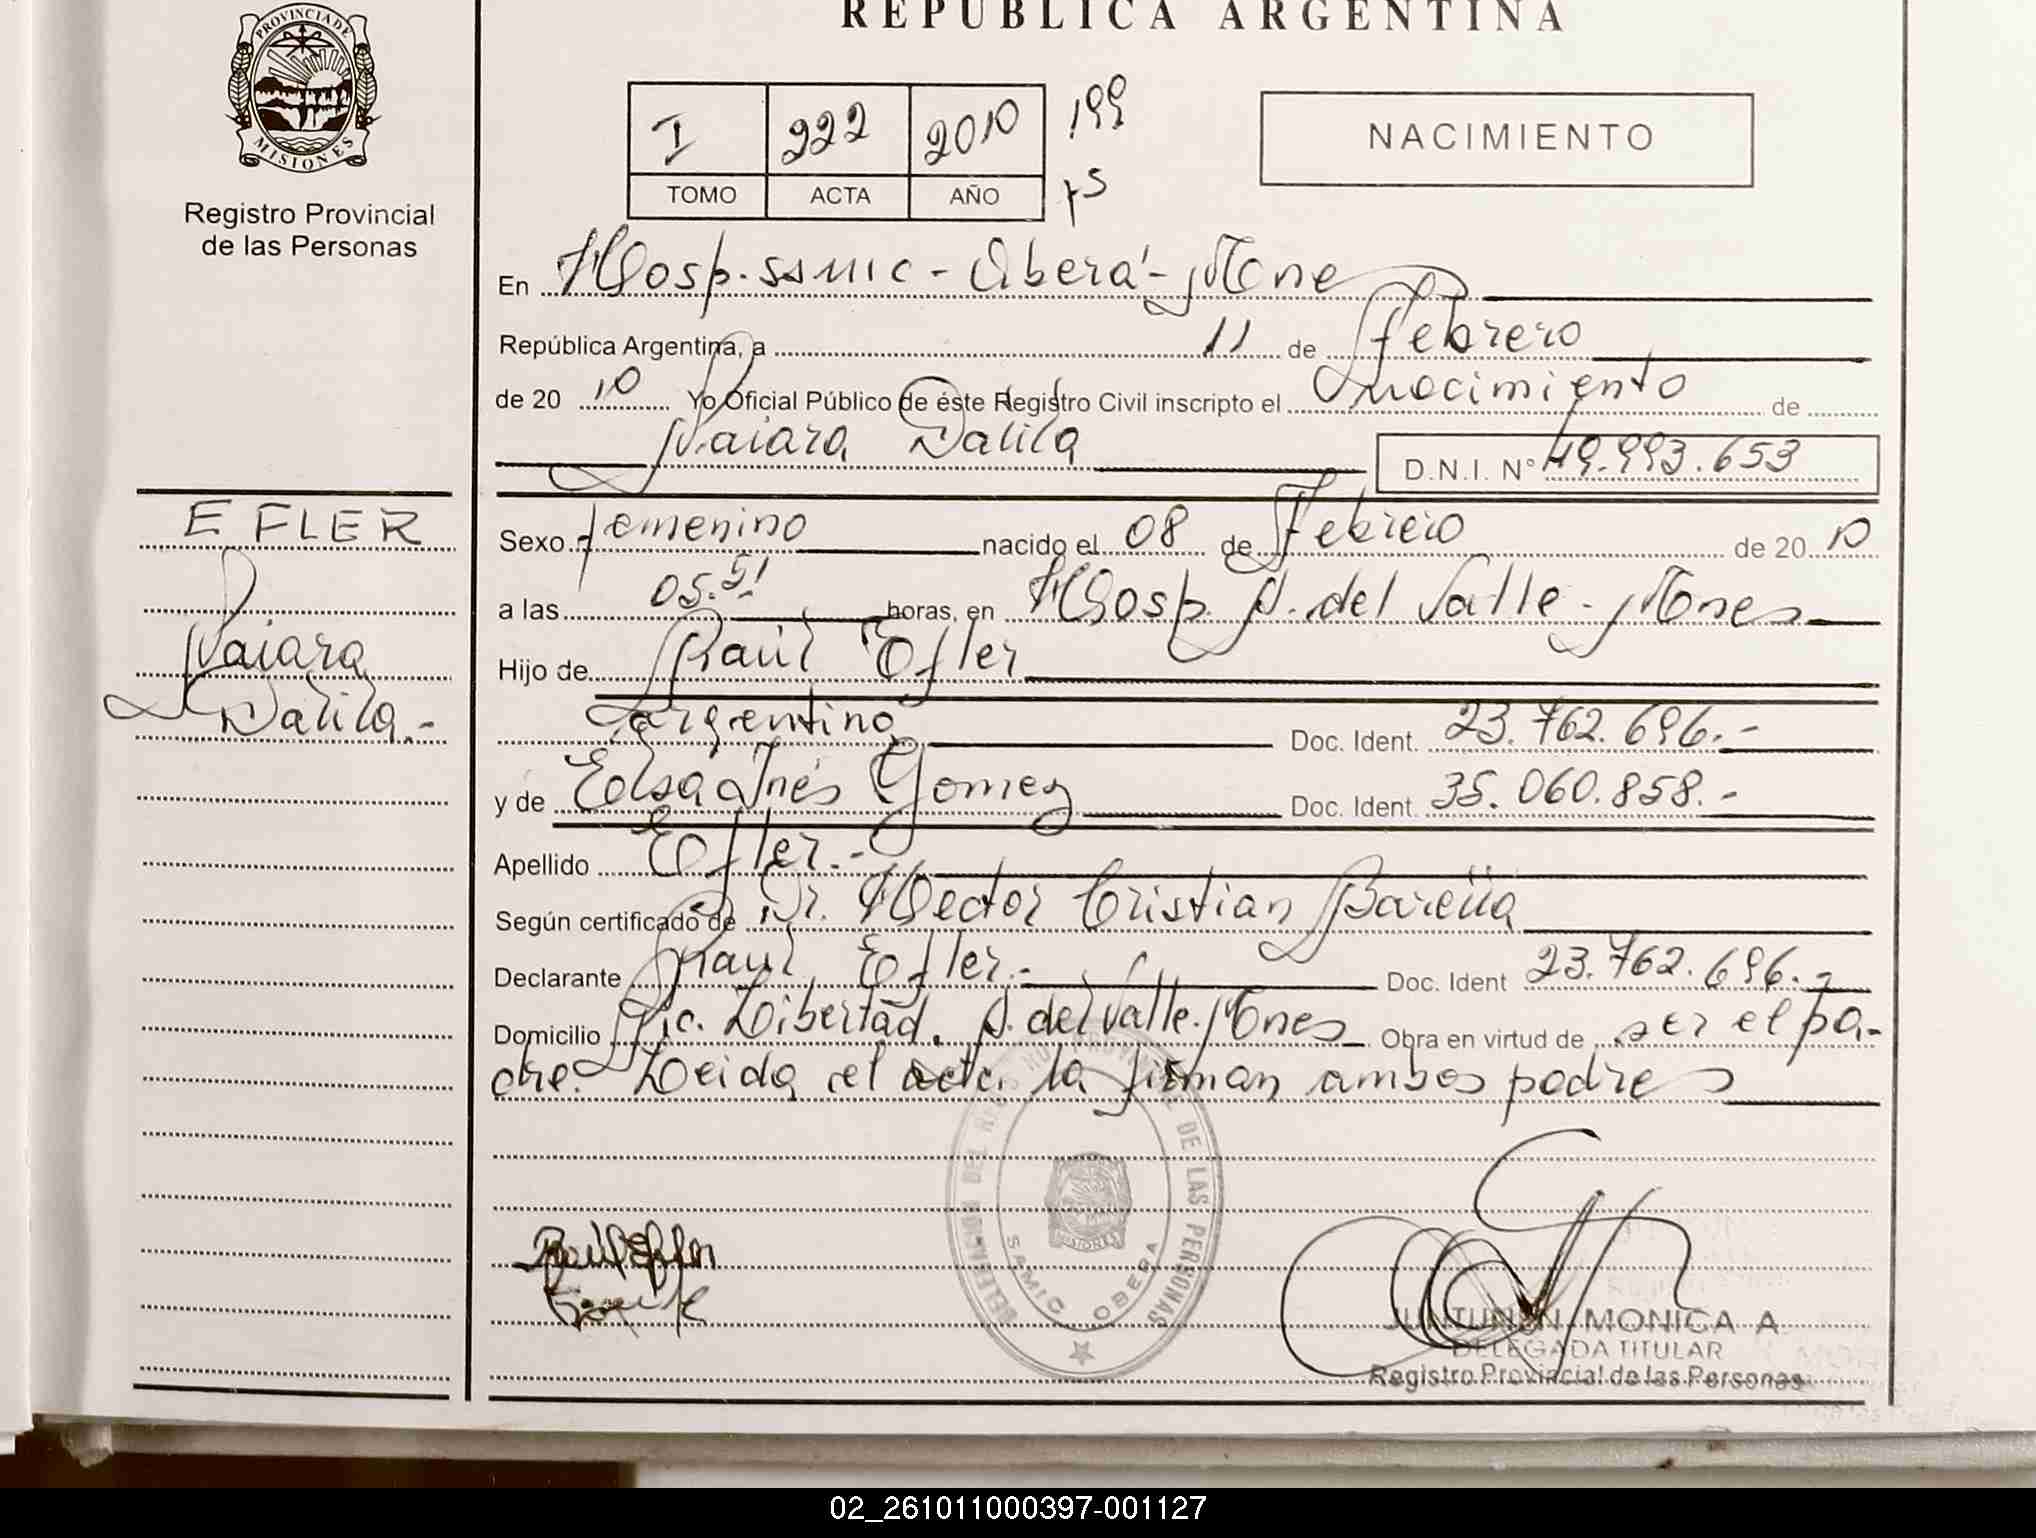 REPUBLICA ARGENTINA
PROVINCIA DE
MISIONES
Registro Provincial
de las Personas
I 222 2010 199
TOMO ACTA AÑO
NACIMIENTO
En Hosp. ssmic - Oberá - Mnes
República Argentina, a 11 de Febrero
de 20 10 Yo Oficial Público de éste Registro Civil inscripto el nacimiento de
Naiara Dalila D.N.I. N° 49.993.653
EFLER
Naiara
Dalila.-
Sexo femenino nacido el 08 de Febrero de 20 10
a las 05.51 horas, en Hosp. A. del Valle - Mnes
Hijo de Raúl Efler
argentino Doc. Ident. 23.762.696.-
y de Elsa Inés Gomez Doc. Ident. 35.060.858.-
Apellido Efler.-
Según certificado de Dr. Hector Cristian Bareiia
Declarante Raúl Efler.- Doc. Ident 23.762.696.-
Domicilio Pic. Libertad. A. del Valle. Mnes Obra en virtud de ser el pa-
dre. Leida el acta la firman ambos padres
DE LAS PERSONAS
SAMIC OBERA
MISIONES
Raúl Efler
JUNTUNEN MONICA A
DELEGADA TITULAR
Registro Provincial de las Personas
02_261011000397-001127